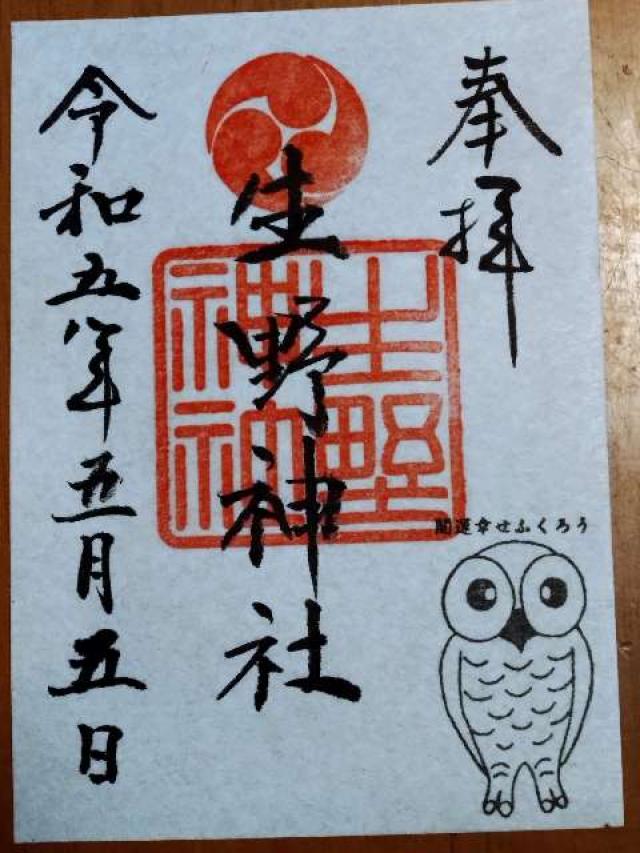 奉拝
生野神社
生野神社
開運幸せふくろう
令和五年五月五日